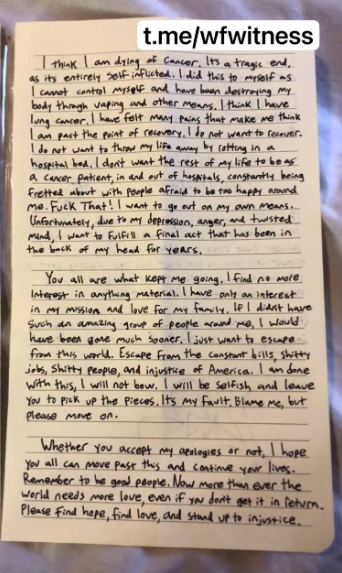 t.me/wfwitness
I think I am dying of cancer. Its a tragic end,
as its entirely self-inflicted. I did this to myself as
I cannot control myself and have been destroying my
body through vaping and other means. I think I have
lung cancer. I have felt many pains that make me think
I am past the point of recovery. I do not want to recover.
I do not want to throw my life away by rotting in a
hospital bed. I don't want the rest of my life to be as
a cancer patient, in and out of hospitals, constantly being
fretted about with people afraid to be too happy around
me. Fuck That! I want to go out on my own means.
Unfortunately, due to my depression, anger, and twisted
mind, I want to fulfill a final act that has been in
the back of my head for years.
You all are what kept me going. I find no more
interest in anything material. I have only an interest
in my mission and love for my family. If I didnt have
such an amazing group of people around me, I would
have been gone much sooner. I just want to escape
from this world. Escape from the constant bills, shitty
jobs, shitty people, and injustice of America. I am done
with this, I will not bow. I will be selfish and leave
you to pick up the pieces. Its my fault. Blame me, but
please move on.
Whether you accept my apologies or not, I hope
you all can move past this and continue your lives.
Remember to be good people. Now more than ever the
world needs more love, even if you don't get it in return.
Please find hope, find love, and stand up to injustice.